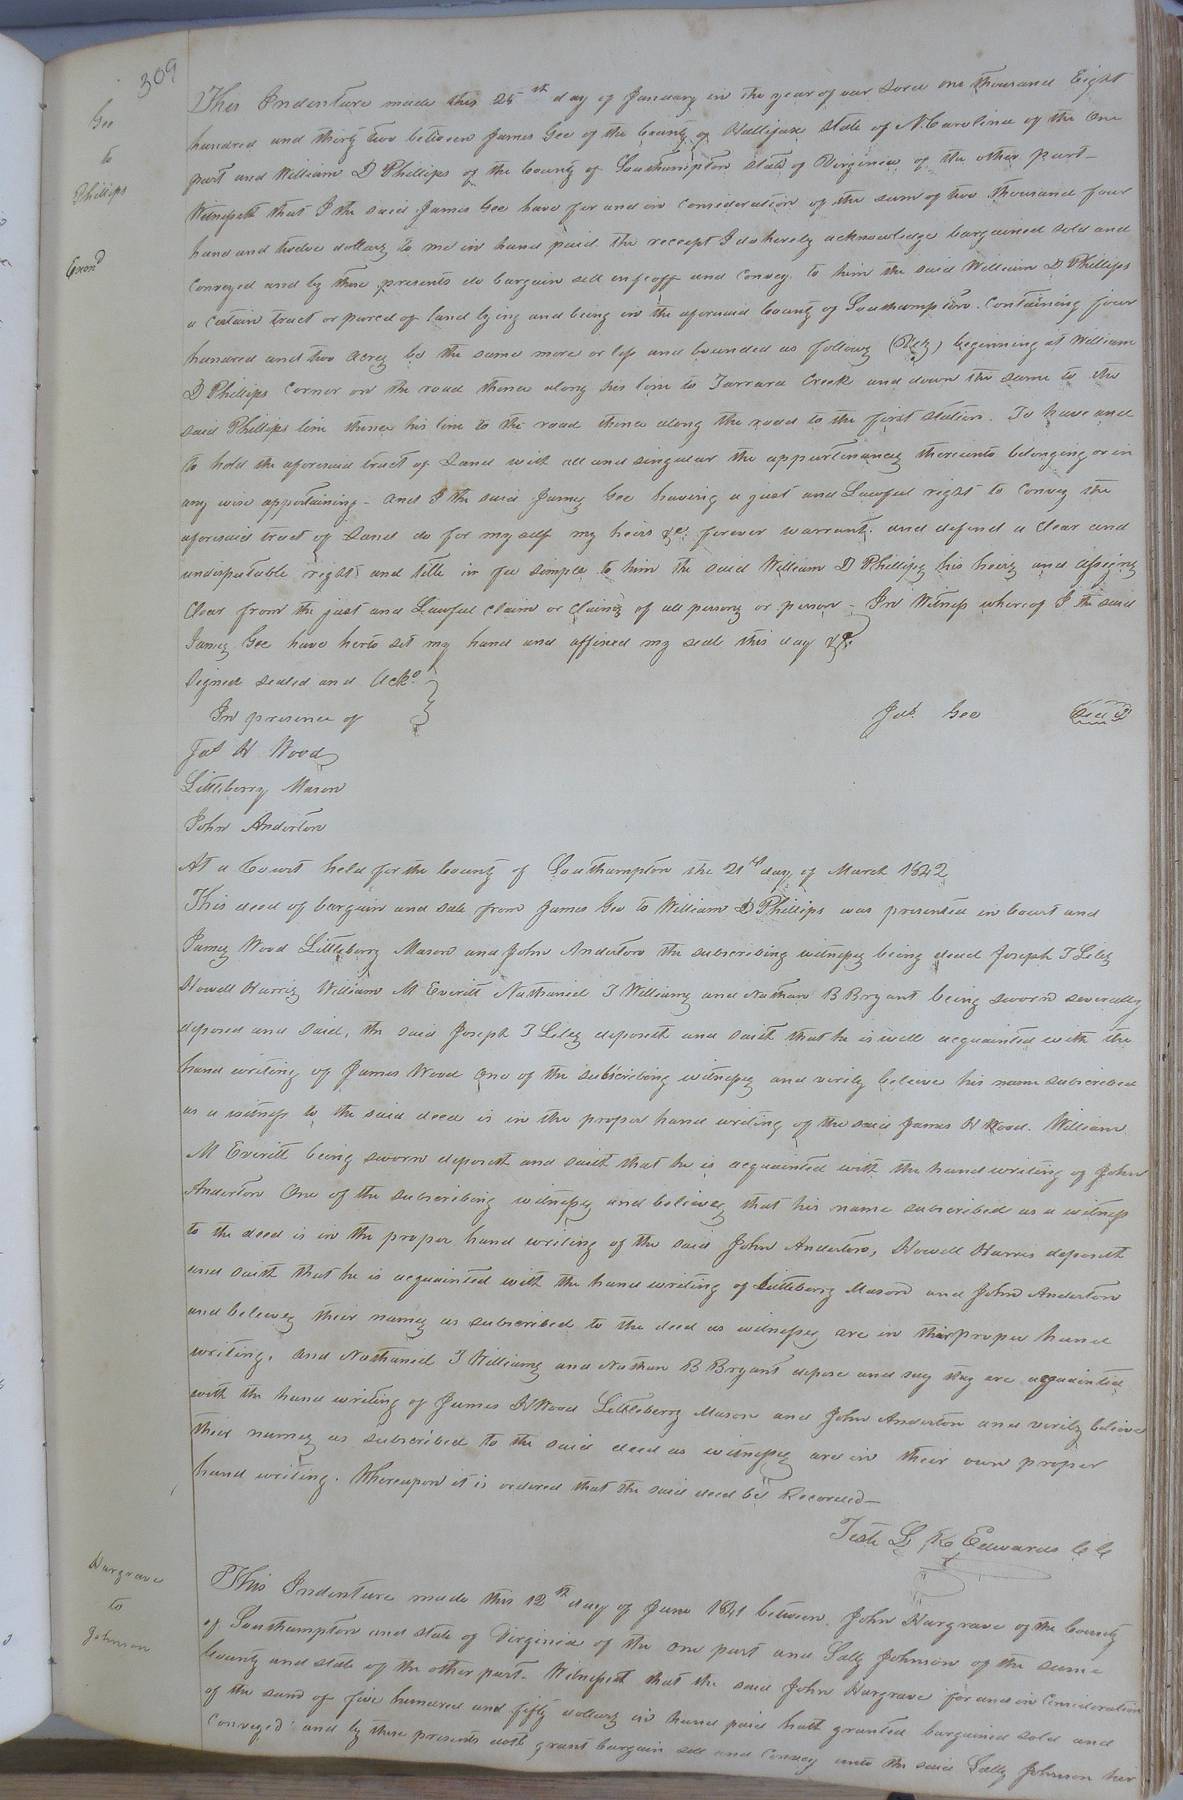 309
Gee
to
Phillips
Exam^d
This Indenture made this 25^th day of January in the year of our Lord one thousand Eight
hundred and thirty two between James Gee of the County of Hallifax State of N. Carolina of the One
part and William D Phillips of the County of Southampton State of Virginia of the other part -
Witnesseth that I the said James Gee have for and in consideration of the sum of two thousand four
hand and twelve dollars to me in hand paid the receept I do hereby acknowledge bargained sold and
conveyed and by these presents do bargain sell enfeoff and convey to him the said William D Phillips
a certain tract or parcel of land lying and being in the aforesaid County of Southampton. Containing four
hundred and two acres be the same more or less and bounded as follows (Viz) beginning at William
D Phillips corner on the road thence along his line to Tarrara Creek and down the same to the
said Phillips line thence his line to the road thence along the road to the first station. To have and
to hold the aforesaid tract of Land with all and singular the appurtenances thereunto belonging or in
any wise appertaining - and I the said James Gee having a just and Lawful right to convey the
aforesaid tract of Land do for my self my heirs &c. forever warrant and defend a clear and
undisputable right and title in fee simple to him the said William D Phillips his heirs and assigns
clear from the just and Lawful claim or claims of all persons or person - In Witness whereof I the said
James Gee have hereto set my hand and affixed my seal this day &c.
Signed sealed and Ack^d
In presence of
Jas Gee Seal
Jas H Wood
Littleberry Mason
John Anderton
At a Court held for the County of Southampton the 21^st day of March 1842
This deed of bargain and sale from James Gee to William D Phillips was presented in Court and
James Wood Littleberry Mason and John Anderton the subscribing witnesses being dead Joseph T Liles
Howell Harris William M Everitt Nathaniel T Williams and Nathan B Bryant being sworn severally
deposed and said, the said Joseph T Liles deposeth and saith that he is well acquainted with the
hand writing of James Wood one of the subscribing witnesses and verily believe his name subscribed
as a witness to the said deed is in the proper hand writing of the said James H Wood. William
M Everitt being sworn deposeth and saith that he is acquainted with the hand writing of John
Anderton One of the subscribing witnesses and believes that his name subscribed as a witness
to the deed is in the proper hand writing of the said John Anderton, Howell Harris deposeth
and saith that he is acquainted with the hand writing of Littleberry Mason and John Anderton
and believes their names as subscribed to the deed as witnesses are in their proper hand
writing, and Nathaniel T Williams and Nathan B Bryant depose and say they are acquainted
with the hand writing of James H Wood Littleberry Mason and John Anderton and verily believe
their names as subscribed to the said deed as witnesses are in their own proper
hand writing. Whereupon it is ordered that the said deed be Recorded -
Teste L. R. Edwards C C
Hargrave
to
Johnson
This Indenture made this 12^th day of June 1841 between John Hargrave of the County
of Southampton and state of Virginia of the one part and Sally Johnson of the same
County and state of the other part. Witnesseth that the said John Hargrave for and in Consideration
of the sum of five hundred and fifty dollars in hand paid hath granted bargained sold and
conveyed and by these presents doth grant bargain sell and convey unto the said Sally Johnson her